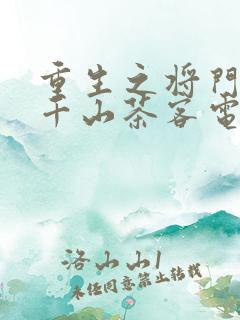 重生之将门
千山茶客电
洛山山1
未经同意禁止转载